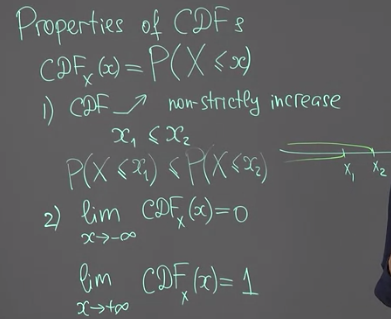 Properties of CDFs
CDFₓ(x) = P(X ⩽ x)
1) CDF ↗ non-strictly increase
x₁ ⩽ x₂
P(X ⩽ x₁) ⩽ P(X ⩽ x₂)
x₁ x₂
2) lim CDFₓ(x) = 0
x→-∞
lim CDFₓ(x) = 1
x→+∞